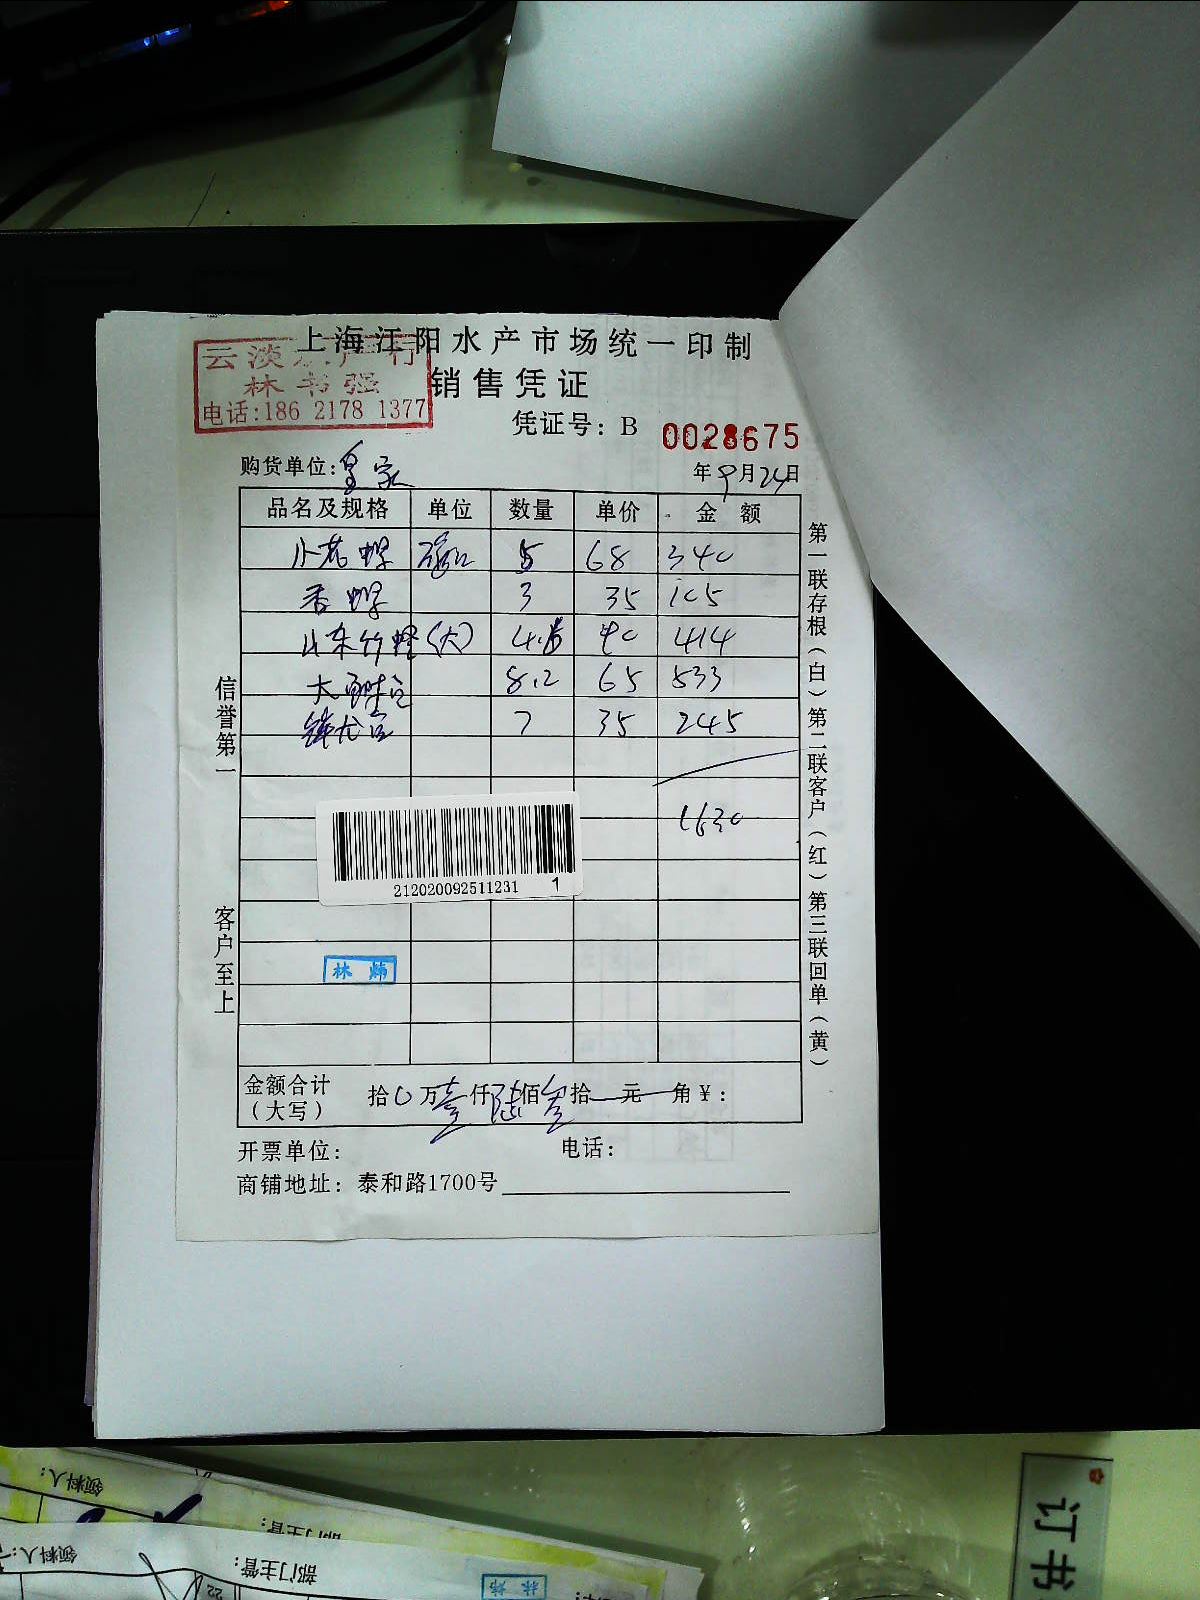 上海江阳水产市场统一印制
云淡水产行
林书强
电话:186 2178 1377
销售凭证
凭证号: B 0028675
购货单位:皇家
年9月24日
品名及规格 单位 数量 单价 金额
小花螺 5 68 340
香螺 3 35 105
山东竹蛏(大) 4.6 90 414
大 8.2 65 533
7 35 245
1630
212020092511231 1
林炜
金额合计(大写) 拾0万壹仟陆佰叁拾元角¥:
开票单位: 电话:
商铺地址: 泰和路1700号
信誉第一
客户至上
第一联存根(白)第二联客户(红)第三联回单(黄)
领料人:
部门主管:
领料人:
部门主管:
22
林炜
订书